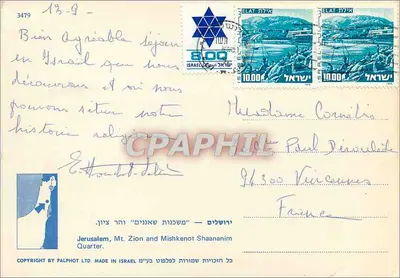 3479
13.9-
Bien agréable séjour
en Israël que nous
découvrons et où nous
pouvons situer notre
histoire
ISRAEL ישראל
ELAT אילת
10.00 ISRAEL ישראל
ELAT אילת
10.00 ISRAEL ישראל
Madame
Paul Déroulède
France
CPAPHIL
ירושלים – "משכנות שאננים" והר ציון.
Jerusalem, Mt. Zion and Mishkenot Shaananim
Quarter.
כל הזכויות שמורות לפלפוט בע"מ
COPYRIGHT BY PALPHOT LTD. MADE IN ISRAEL